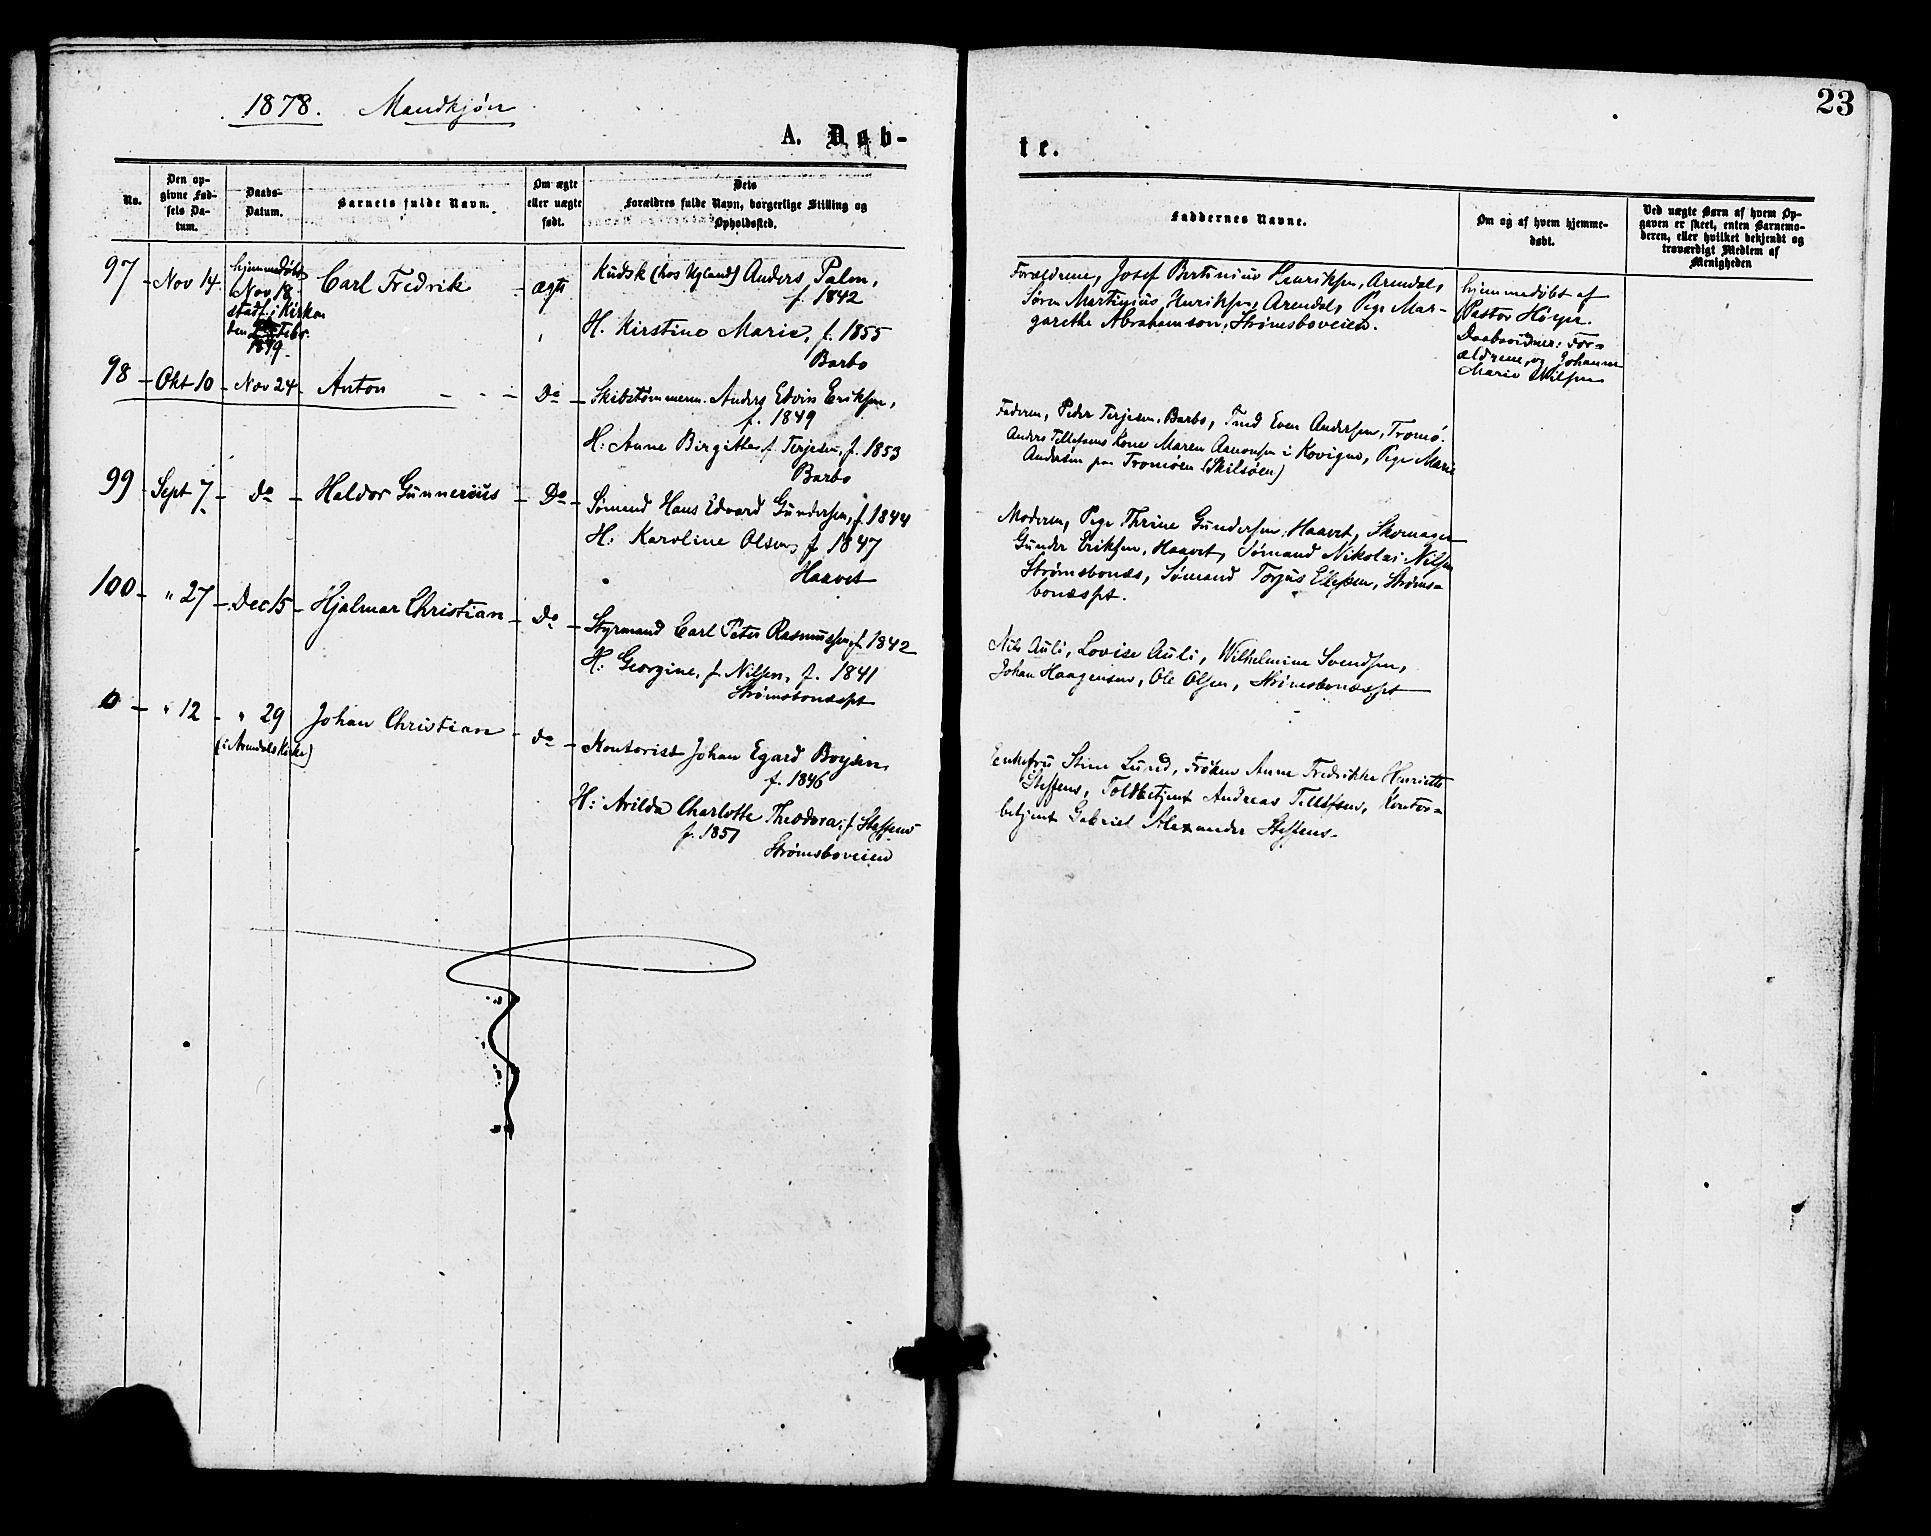 23
1878. Mandkjøn
A. Døb-
te.
No.
Den op-
givne Fød-
sels Da-
tum.
Daabs-
Datum.
Barnets fulde Navn.
Om ægte
eller uægte
født.
Dets
Forældres fulde Navn, borgerlige Stilling og
Opholdssted.
Faddernes Navne.
Om og af hvem hjemme-
døbt.
Ved uægte Børn af hvem Op-
gaven er skeet, enten Barnemo-
deren, eller hvilket bekjendt og
troværdigt Medlem af
Menigheden
97 - Nov 14 -
hjemmedøbt
Nov 18
stadf. i Kirken
den Febr.
1879.
Carl Fredrik - ægte
Kudsk (hos Ugland) Anders Palm,
f. 1842
H. Kirstine Marie, f. 1855
Barbo
Forældrene, Josef Bertinius Henriksen, Arendal,
Søren Martinius Henriksen, Arendal, Pige Mar-
garethe Abrahamson, Strømsboveien.
hjemmedøbt af
Pastor
Daabsvidner: For-
ældrene og Johanne
Marie Wilsen
98 - Okt 10 - Nov 24 - Anton - Do -
Skibstømmerm. Anders Edvin Eriksen,
f. 1849
H: Anne Birgitte f. Terjesen, f. 1853
Barbo
Faderen, Peder Terjesen, Barbo, Even Andersen, Tromø.
Anders Tellefsens Kone Maren Aanonsen i Kovigen, Pige Marie
Andersen paa Tromøen (Skilsøen)
99 - Sept 7 - Do - Haldor Gunnerius - Do -
Sømand Hans Edvard Gundersen, f. 1844
H: Karoline Olsen, f 1847
Haavet
Moderen, Pige Thrine Gundersen, Haavet, Skomager
Gunder Eriksen, Haavet, Sømand Nikolai Nilsen
Strømsbonæs, Sømand Torjus Ellefsen, Strøms-
bonæsset.
100 - " 27 - Dec 15 - Hjalmar Christian - Do -
Styrmand Carl Peter Rasmussen, f. 1842
H: Georgine, f. Nilsen, f. 1841
Strømsbonæsset
Nils Auli, Lovise Auli, Wilhelmine Svendsen,
Johan Haagensen, Ole Olsen, Strømsbonæsset
0 - " 12 - " 29 Johan Christian - do -
(i Arendals Kirke)
Kontorist Johan Egard Boysen,
f. 1846
H: Arilda Charlotte Theodora, f. Steffens
f. 1851
Strømsboveien
Enkefru Stine Lund, Frøken Anne Fredrikke Henriette
Steffens, Toldbetjent Andreas Tellefsen, Kontor-
betjent Gabriel Alexander Steffens.